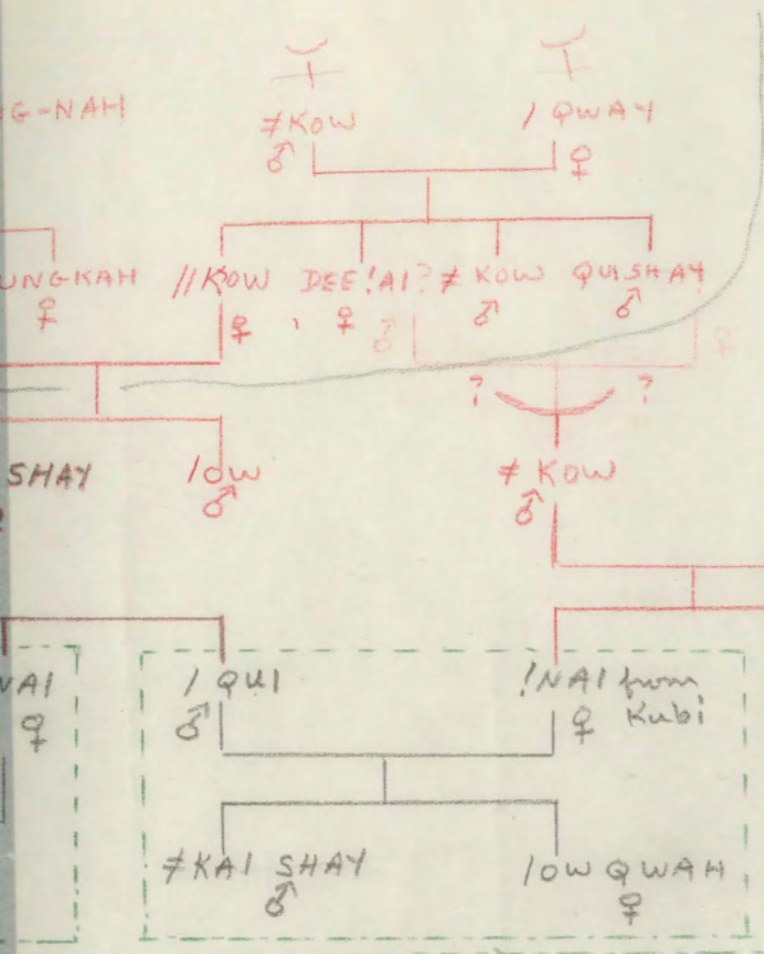 G-NAH ≠KOW /QWAY
♂ ♀
UNGKAH //KOW DEE!AI? ≠KOW QUISHAY
♀ ♀ , ♀ ♂ ♂ ♂ ♀
? ?
SHAY /OW ≠KOW
♂ ♂
NAI /QUI !NAI from
♀ ♂ ♀ Kubi
≠KAI SHAY /OW QWAH
♂ ♀